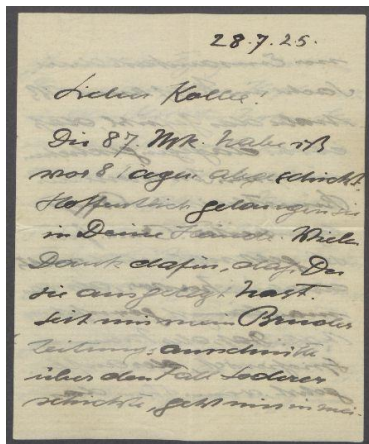 28.7.25.
Lieber Kolbe!
Die 87. Mk. habe ich
vor 8 Tagen abgeschickt.
Hoffentlich gelangen sie
in Deine Hände. Vielen
Dank dafür, daß Du
sie ausgelegt hast.
Seit mir mein Bruder
Zeitungsausschnitte
über den Fall Lederer
schickte, geht mir in mei-